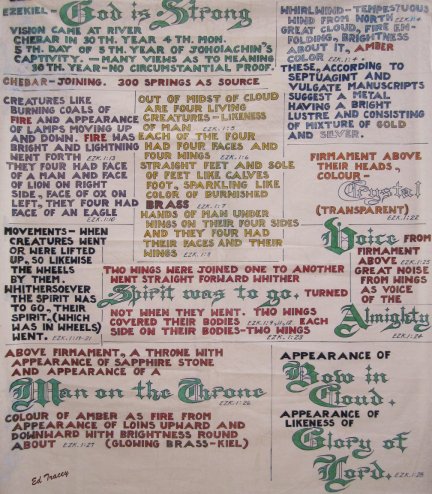 EZEKIEL - God is Strong
VISION CAME AT RIVER
CHEBAR IN 30TH. YEAR 4TH. MON.
5TH. DAY OF 5TH. YEAR OF JOHOIACHIN'S
CAPTIVITY. - MANY VIEWS AS TO MEANING
30TH. YEAR - NO CIRCUMSTANTIAL PROOF.
CHEBAR - JOINING. 300 SPRINGS AS SOURCE
WHIRLWIND - TEMPESTUOUS
WIND FROM NORTH EZK.1:4
GREAT CLOUD, FIRE EN-
FOLDING, BRIGHTNESS
ABOUT IT, AMBER
COLOR EZK.1:4
THESE, ACCORDING TO
SEPTUAGINT AND
VULGATE MANUSCRIPTS
SUGGEST A METAL
HAVING A BRIGHT
LUSTRE AND CONSISTING
OF MIXTURE OF GOLD
AND SILVER.
CREATURES LIKE
BURNING COALS OF
FIRE AND APPEARANCE
OF LAMPS MOVING UP
AND DOWN. FIRE WAS
BRIGHT AND LIGHTNING
WENT FORTH EZK.1:13
THEY FOUR HAD FACE
OF A MAN AND FACE
OF LION ON RIGHT
SIDE, FACE OF OX ON
LEFT, THEY FOUR HAD
FACE OF AN EAGLE
EZK.1:10
OUT OF MIDST OF CLOUD
ARE FOUR LIVING
CREATURES - LIKENESS
OF MAN EZK.1:5
EACH OF THE FOUR
HAD FOUR FACES AND
FOUR WINGS EZK.1:6
STRAIGHT FEET AND SOLE
OF FEET LIKE CALVES
FOOT, SPARKLING LIKE
COLOR OF BURNISHED
BRASS EZK.1:7
HANDS OF MAN UNDER
WINGS ON THEIR FOUR SIDES
AND THEY FOUR HAD
THEIR FACES AND THEIR
WINGS EZK.1:8
FIRMAMENT ABOVE
THEIR HEADS,
COLOUR -
Crystal
(TRANSPARENT)
EZK.1:22
MOVEMENTS - WHEN
CREATURES WENT
OR WERE LIFTED
UP, SO LIKEWISE
THE WHEELS
BY THEM.
WHITHERSOEVER
THE SPIRIT WAS
TO GO, THEIR
SPIRIT, (WHICH
WAS IN WHEELS)
WENT. EZK.1:19-21
Voice FROM
FIRMAMENT
ABOVE EZK.1:25
GREAT NOISE
FROM WINGS
AS VOICE
OF THE
Almighty
EZK.1:24
TWO WINGS WERE JOINED ONE TO ANOTHER
WENT STRAIGHT FORWARD WHITHER
Spirit was to go. TURNED
NOT WHEN THEY WENT. TWO WINGS
COVERED THEIR BODIES EZK.1:9,11,12 EACH
SIDE ON THEIR BODIES - TWO WINGS
EZK.1:23
ABOVE FIRMAMENT, A THRONE WITH
APPEARANCE OF SAPPHIRE STONE
AND APPEARANCE OF A
Man on the Throne
EZK.1:26
COLOUR OF AMBER AS FIRE FROM
APPEARANCE OF LOINS UPWARD AND
DOWNWARD WITH BRIGHTNESS ROUND
ABOUT EZK.1:27 (GLOWING BRASS - KIEL)
APPEARANCE OF
Bow in
Cloud,
APPEARANCE OF
LIKENESS OF
Glory of
Lord.
EZK.1:28
Ed Tracey